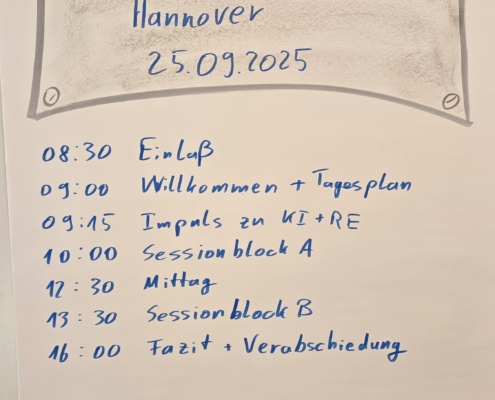 Hannover
25.09.2025
08:30 Einlaß
09:00 Willkommen + Tagesplan
09:15 Impuls zu KI + RE
10:00 Sessionblock A
12:30 Mittag
13:30 Sessionblock B
16:00 Fazit + Verabschiedung